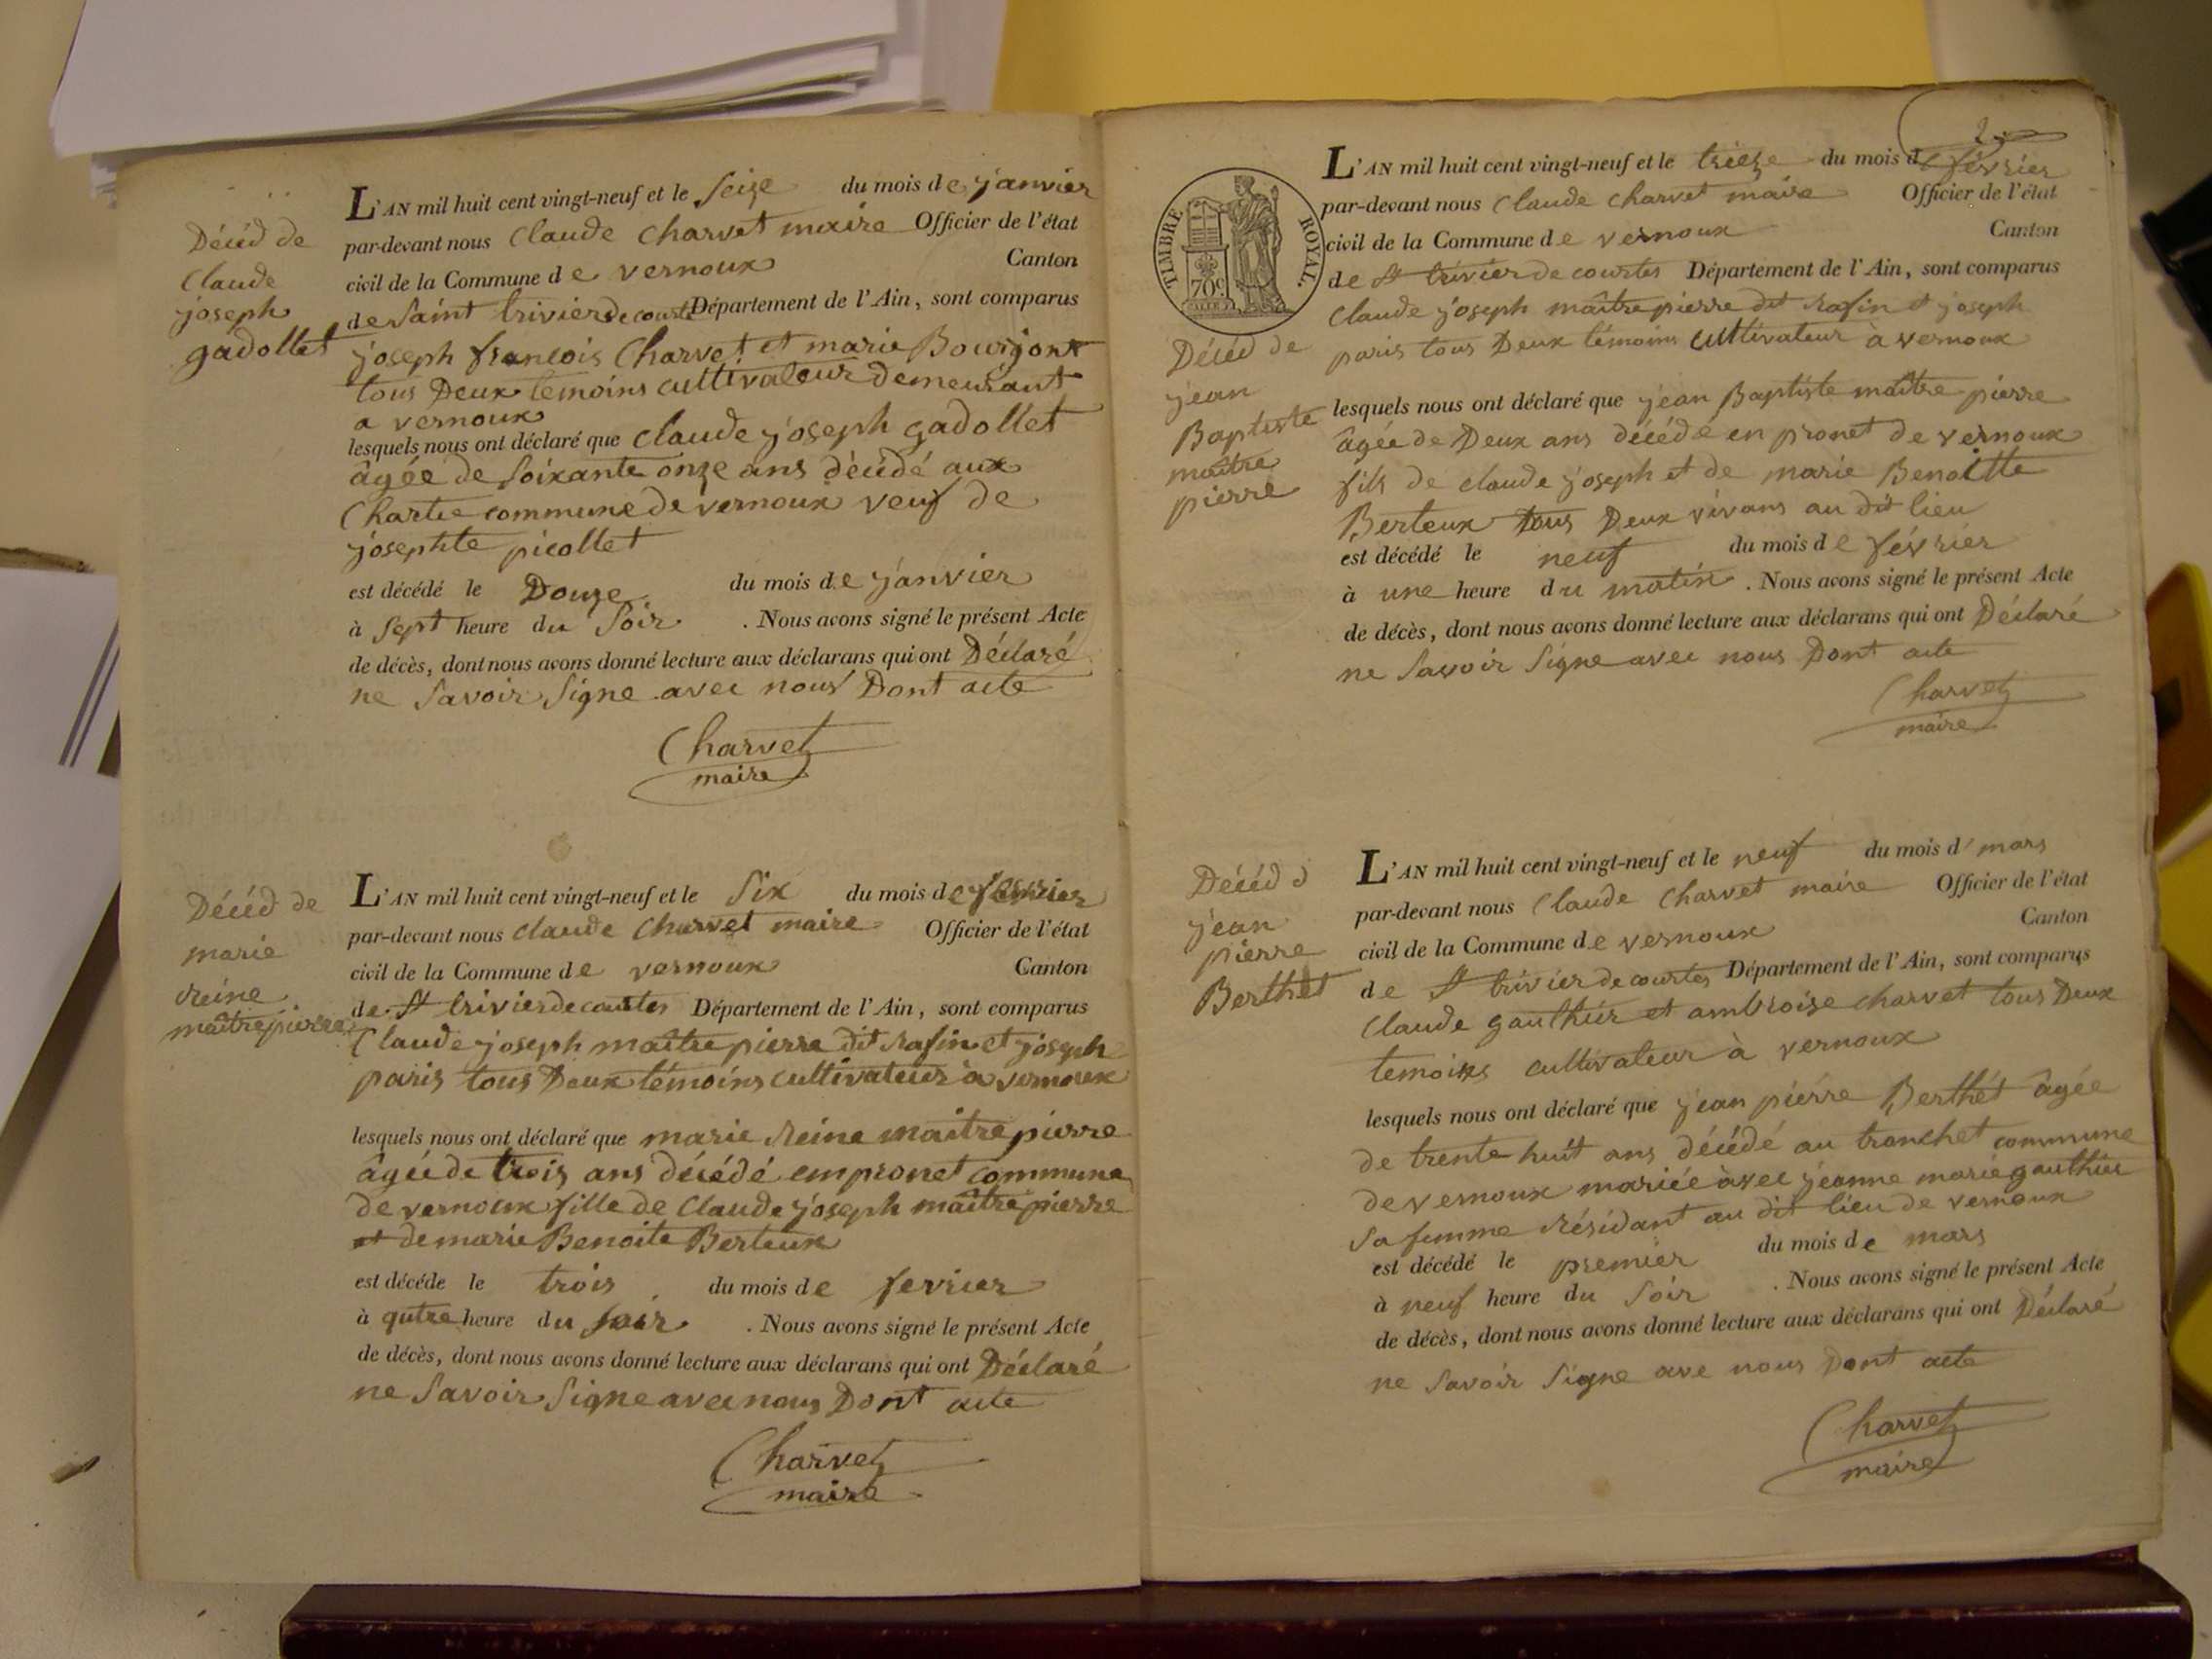 Décéd de
Claude
joseph
gadollet
L'AN mil huit cent vingt-neuf et le seize du mois de janvier
par-devant nous Claude Charvet maire Officier de l'état
civil de la Commune de vernoux Canton
de saint trivier de courte Département de l'Ain, sont comparus
joseph francois Charvet et marie
tous Deux temoins cultivateur demeurant
a vernoux
lesquels nous ont déclaré que Claude joseph gadollet
âgée de soixante onze ans décédé aux
Chartre commune de vernoux veuf de
josephte picollet
est décédé le Douze du mois de janvier
à sept heure du soir . Nous avons signé le présent Acte
de décès, dont nous avons donné lecture aux déclarans qui ont Déclaré
ne savoir signe avec nous Dont acte
Charvet
maire
Décéd de
marie
reine
maîtrepierre
L'AN mil huit cent vingt-neuf et le six du mois de fevrier
par-devant nous Claude Charvet maire Officier de l'état
civil de la Commune de vernoux Canton
de St trivier de courtes Département de l'Ain, sont comparus
Claude joseph maîtrepierre dit rafin et joseph
paris tous Deux témoins cultivateur à vernoux
lesquels nous ont déclaré que marie reine maitrepierre
âgée de trois ans décédé en pronet commune
de vernoux fille de Claude joseph maîtrepierre
et de marie Benoite Berteux
est décéde le trois du mois de fevrier
à qutre heure du soir . Nous avons signé le présent Acte
de décès, dont nous avons donné lecture aux déclarans qui ont Déclaré
ne savoir signe avec nous Dont acte
Charvet
maire
2
TIMBRE ROYAL.
70c
Décéd de
jean
Baptiste
maître
pierre
L'AN mil huit cent vingt-neuf et le trieze du mois de février
par-devant nous Claude Charvet maire Officier de l'état
civil de la Commune de vernoux Canton
de St trivier de courtes Département de l'Ain, sont comparus
Claude joseph maîtrepierre dit rafin et joseph
paris tous Deux témoins cultivateur à vernoux
lesquels nous ont déclaré que jean Baptiste maître pierre
âgée de Deux ans décédé en pronet de vernoux
fils de claude joseph et de marie Benoitte
Berteux tous Deux vivans au dit lieu
est décédé le neuf du mois de février
à une heure du matin . Nous avons signé le présent Acte
de décès, dont nous avons donné lecture aux déclarans qui ont Déclaré
ne savoir signe avec nous Dont acte
Charvet
maire
Décéd d
jean
pierre
Berthet
L'AN mil huit cent vingt-neuf et le neuf du mois d' mars
par-devant nous Claude Charvet maire Officier de l'état
civil de la Commune de vernoux Canton
de St trivier de courtes Département de l'Ain, sont comparus
Claude gauthier et ambroise charvet tous Deux
temoins cultivateur à vernoux
lesquels nous ont déclaré que jean pierre Berthet âgée
de trente huit ans décédé au tronchet commune
de vernoux mariée avec jeanne marie gauthier
sa femme résidant au dit lieu de vernoux
est décédé le premier du mois de mars
à neuf heure du soir . Nous avons signé le présent Acte
de décès, dont nous avons donné lecture aux déclarans qui ont Déclaré
ne savoir signe ave nous Dont acte
Charvet
maire